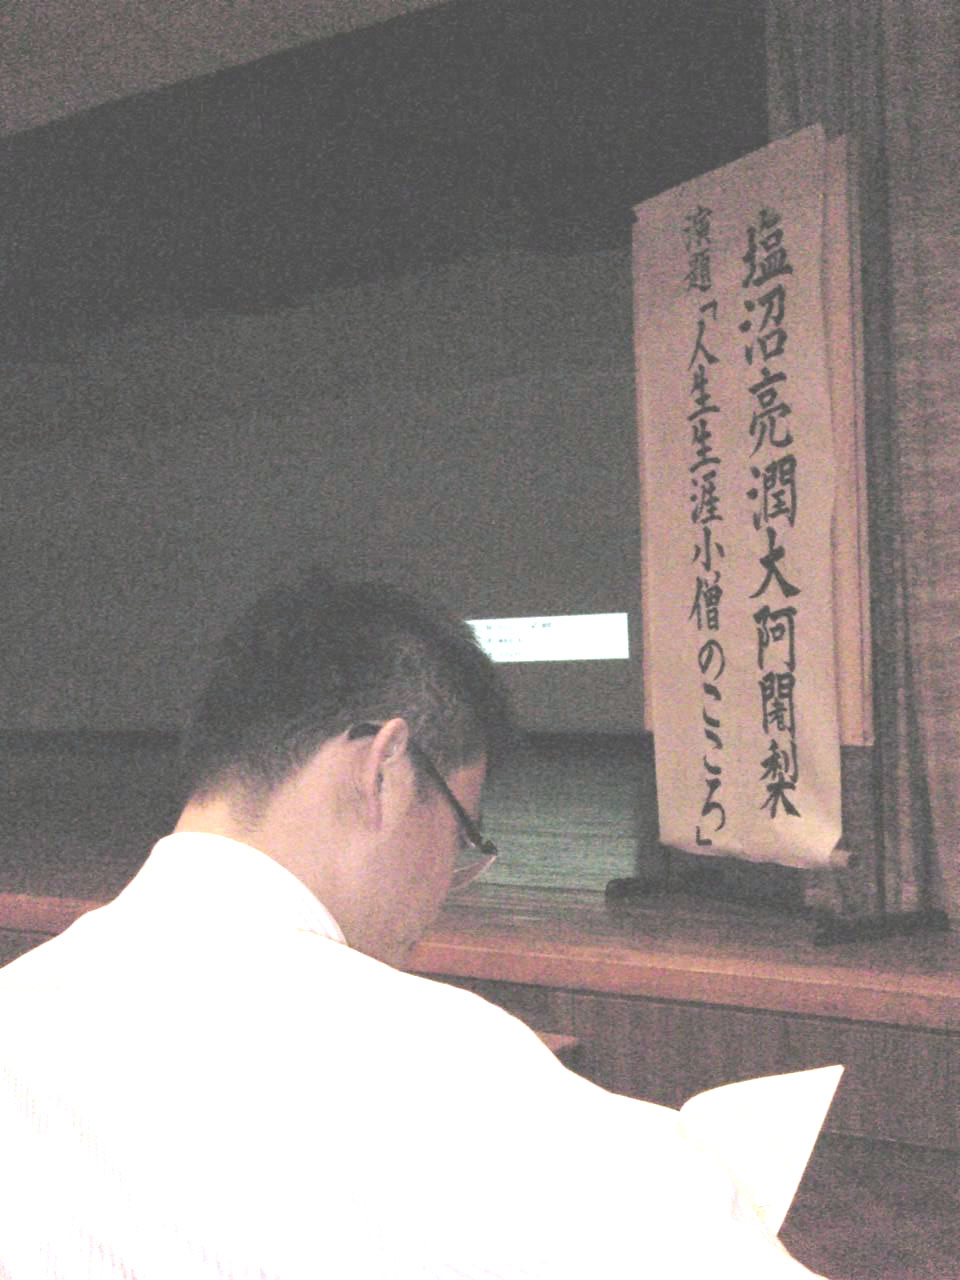 塩沼亮潤大阿闍梨
演題「人生生涯小僧のこころ」